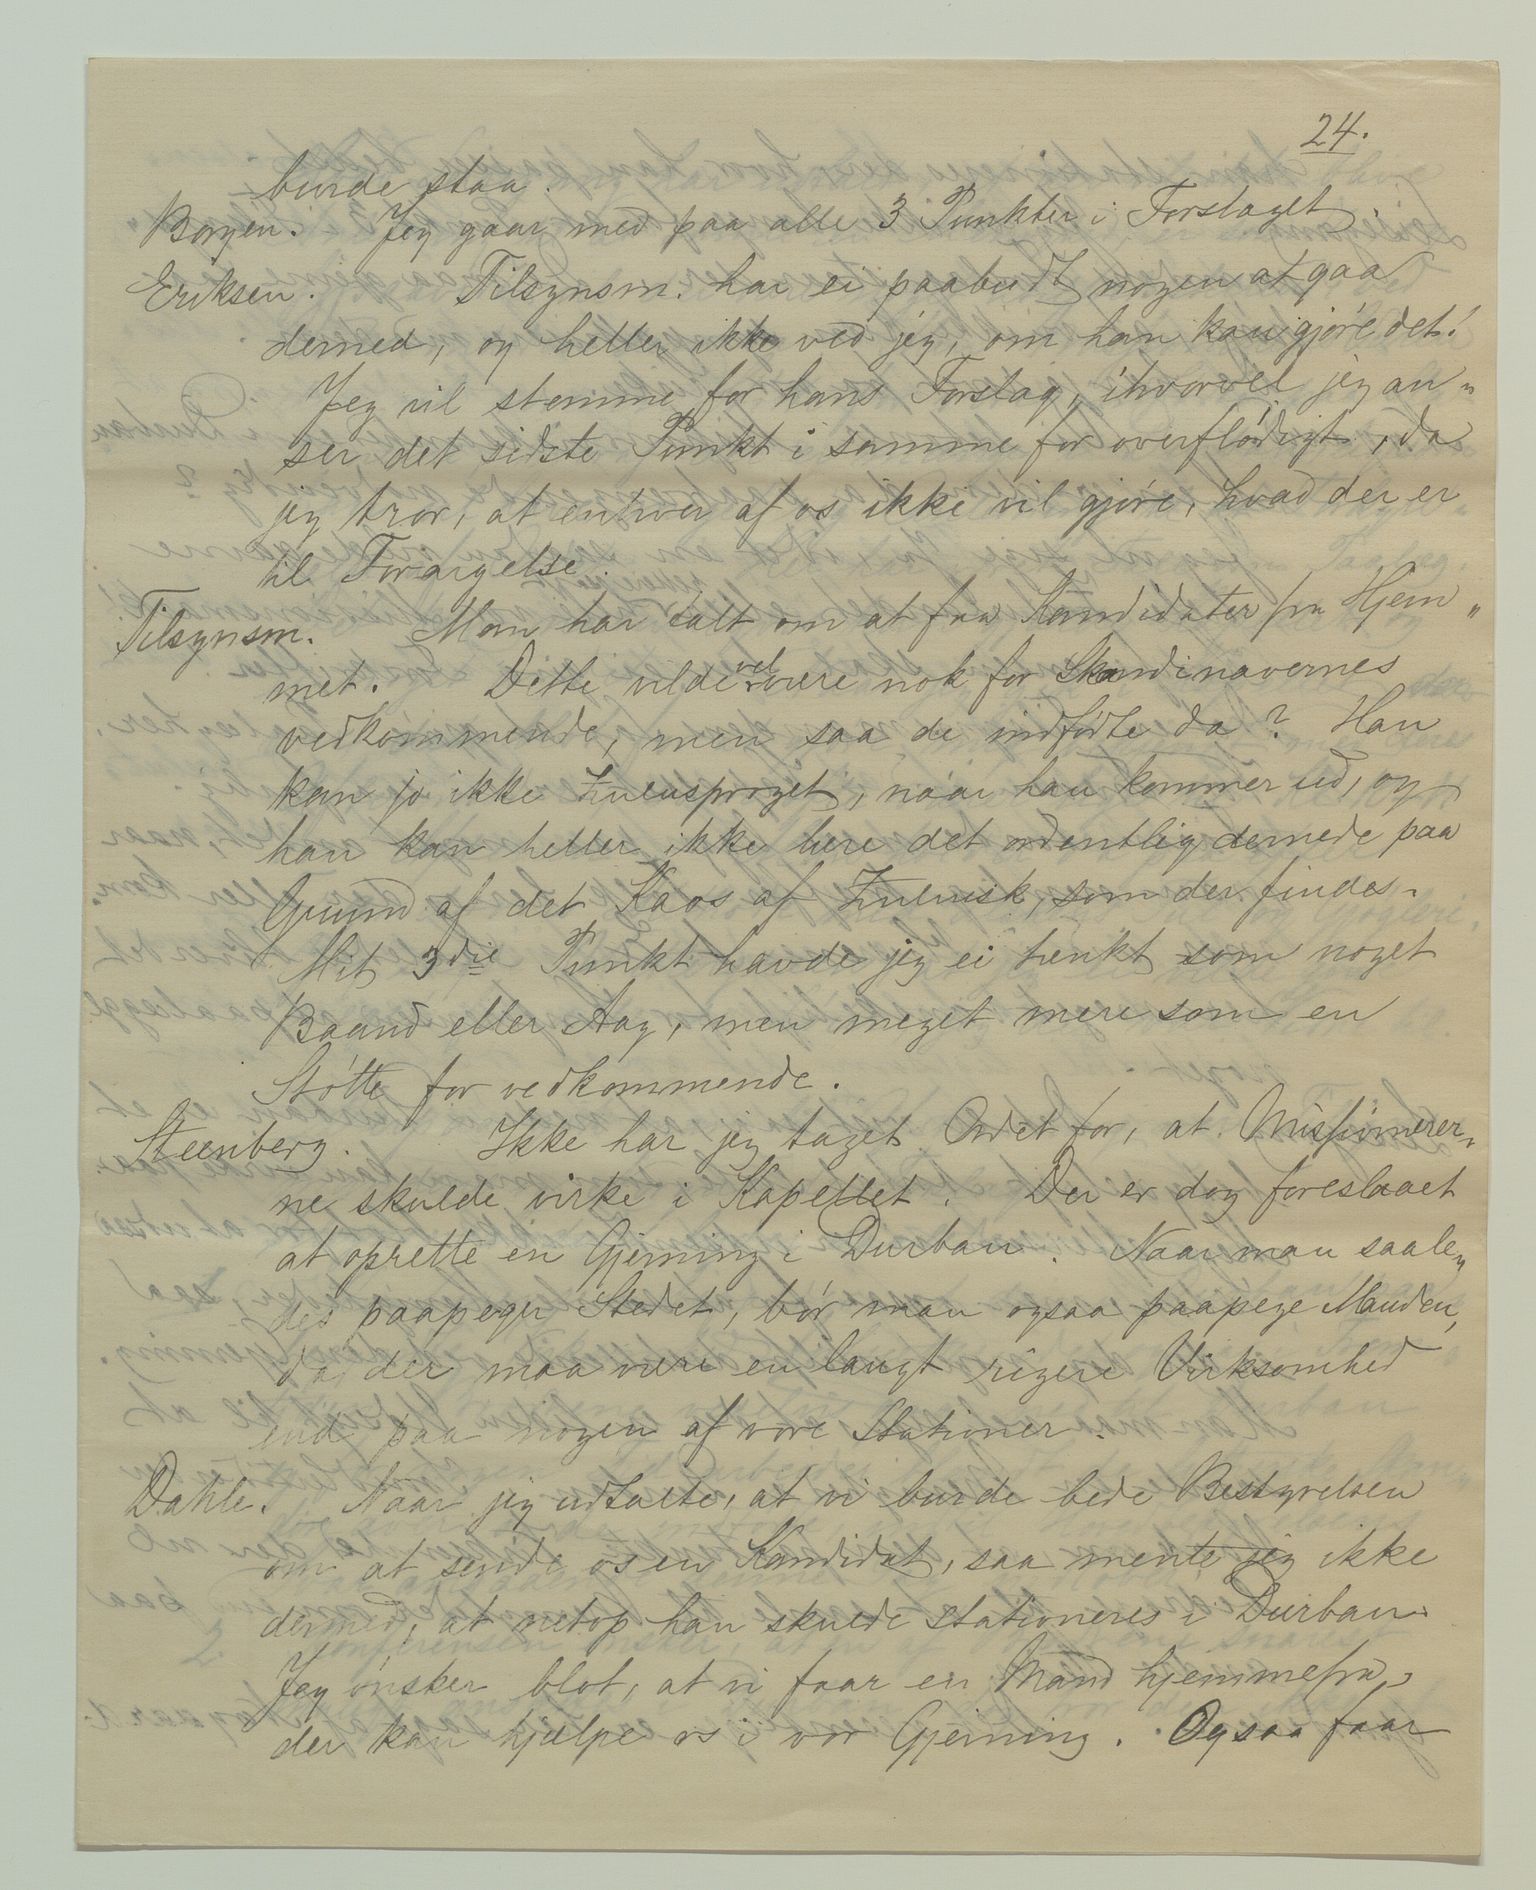 24.
burde staa.
Borgen. Jeg gaar med paa alle 3 Punkter i Forslaget.
Eriksen. Tilsynsm. har ei paabudt nogen at gaa
derned, og heller ikke ved jeg, om han kan gjøre det!
Jeg vil stemme for hans Forslag, ihvorvel jeg an„
ser det sidste Punkt i samme for overflødigt, da
jeg tror, at enhver af os ikke vil gjøre, hvad der er
til Forargelse.
Tilsynsm. Man har talt om at faa Kandidater fra Hjem„
met. Dette vilde vel være nok for Skandinavernes
vedkommende, men saa de indfødte da? Han
kan jo ikke Zulusproget, naar han kommer ud, og
han kan heller ikke lære det ordentlig dernede paa
Grund af det Kaos af Zuluisk, som der findes.
Mit 3die Punkt havde jeg ei tænkt som noget
Baand eller Aag, men meget mere som en
Støtte for vedkommende.
Steenberg. Ikke har jeg taget Ordet for, at Missionærer„
ne skulde virke i Kapellet. Der er dog foreslaaet
at oprette en Gjerning i Durban. Naar man saale„
des paapeger Stedet, bør man ogsaa paapege Manden,
da der maa være en langt rigere Virksomhed
end paa nogen af vore Stationer.
Dahle. Naar jeg udtalte, at vi burde bede Bestyrelsen
om at sende os en Kandidat, saa mente jeg ikke
dermed, at netop han skulde stationeres i Durban.
Jeg ønsker blot, at vi faar en Mand hjemmefra,
der kan hjælpe os i vor Gjerning. Ogsaa faar